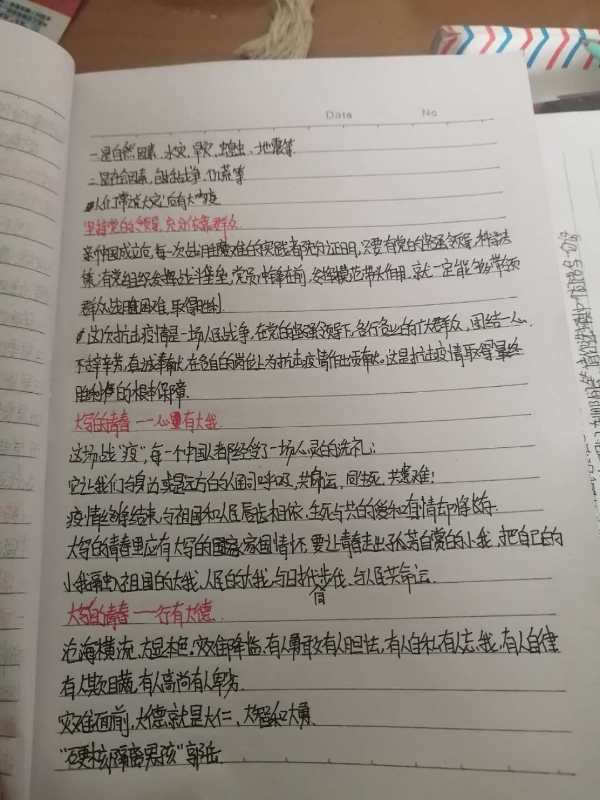 Date No
一是自然因素，水灾，旱灾，蝗虫，地震等
二是社会因素，战争，饥荒等
人们常说大灾后有大疫
坚持党的领导，充分依靠群众
新中国成立后，每一次战胜磨难的实践都充分证明，只要有党的坚强领导，
有党组织发挥战斗堡垒，党员冲锋在前，发挥模范带头作用，就一定能够带领
群众战胜困难，取得胜利
这次抗击疫情是一场人民战争，在党的坚强领导下，各行各业的广大群众，团结一心，
不辞辛劳，真诚奉献，在各自的岗位上为抗击疫情作出贡献。这是抗击疫情取得最终
胜利的根本保障
大写的青春——心里有大我
这场战"疫"，每一个中国人都经受了一场心灵的洗礼；
它让我们与身边或是远方的人们同呼吸，共命运，同生死，共患难！
疫情终将结束，与祖国和人民唇齿相依，生死与共的爱和真情却将长存
大写的青春里应有大写的家国情怀，要让青春走出孤芳自赏的小我，把自己的
小我融入祖国的大我，人民的大我，与时代步伐，与人民共命运
大写的青春——行有大德
沧海横流，方显本色，灾难降临，有人勇敢有人胆怯，有人自私有人忘我，有人自律
有人欺瞒，有人高尚有人卑劣
灾难面前，大德就是大仁，大智和大勇
"硬核隔离男孩"郭岳